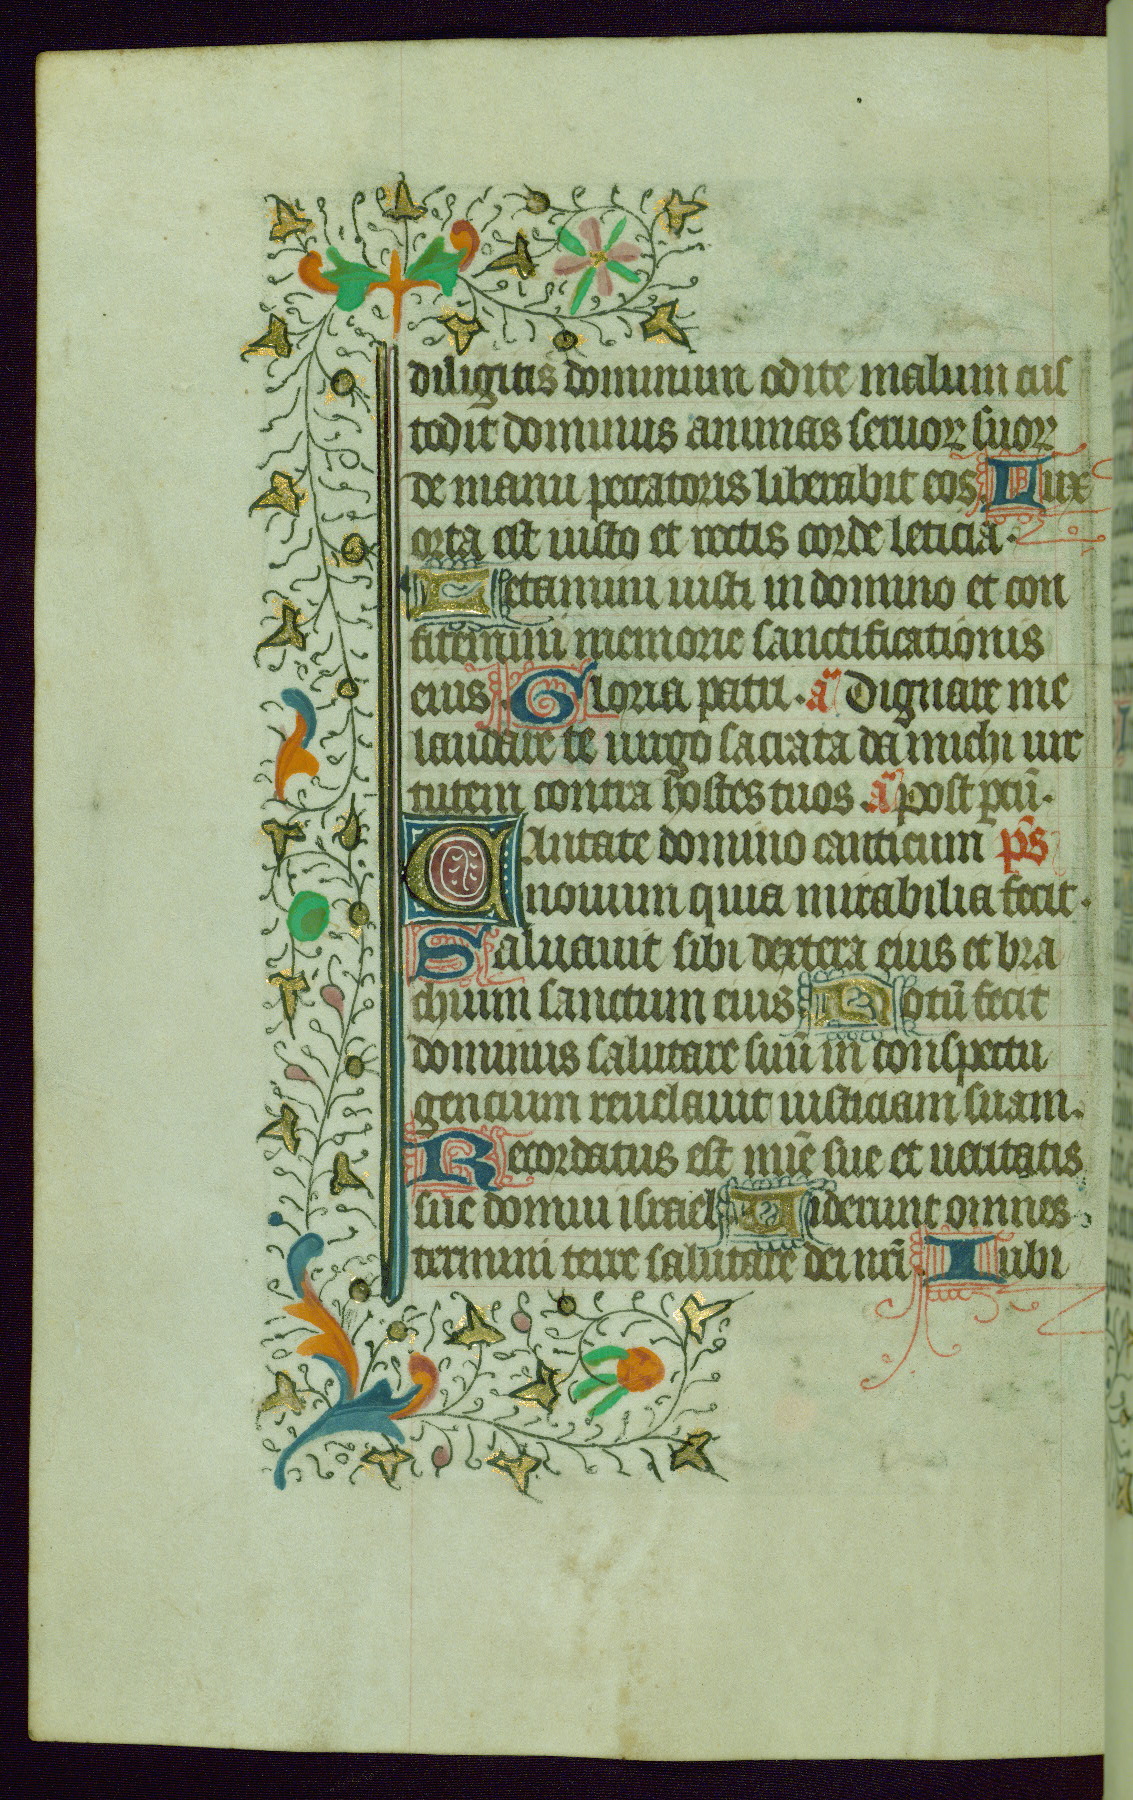 diligitis dominum odite malum cus
todit dominus animas seruoꝝ suoꝝ
de manu peccatoris liberabit eos Lux
orta est iusto et rectis corde leticia.
Letamini iusti in domino et con
fitemini memorie sanctificationis
eius. Gloria patri. a᷃ Dignare me
laudare te uirgo sacrata da michi uir
tutem contra hostes tuos. a᷃ post ptū.
Cantate domino canticum p̄s
nouum quia mirabilia fecit.
Saluauit sibi dextera eius et bra
chium sanctum eius Notū fecit
dominus salutare suū in conspectu
gencium reuelauit iusticiam suam.
Recordatus est mīe sue et ueritatis
sue domui israel Uiderunt omnes
termini terre salutare dei nr̄i. Iubi